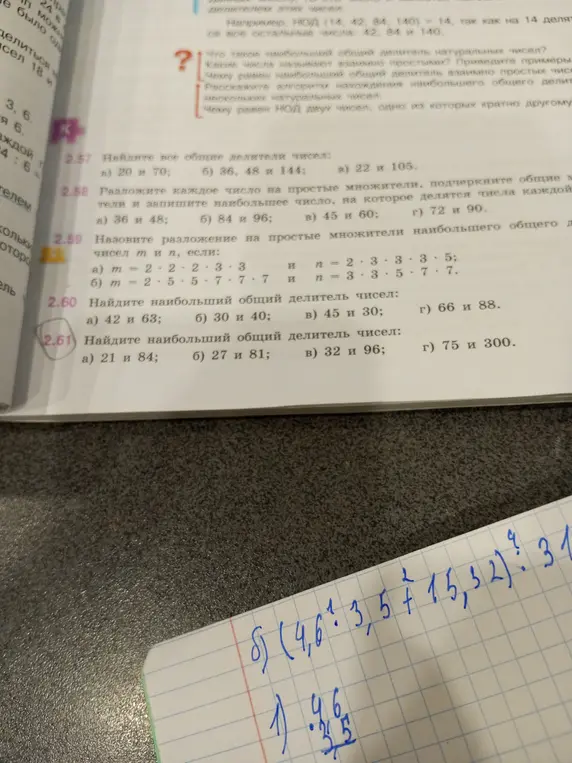 делителем этих чисел.
Например, НОД (14, 42, 84, 140) = 14, так как на 14 делят
ся все остальные числа: 42, 84 и 140.
? Что такое наибольший общий делитель натуральных чисел?
Какие числа называют взаимно простыми? Приведите примеры
Чему равен наибольший общий делитель взаимно простых чис
Расскажите алгоритм нахождения наибольшего общего делит
нескольких натуральных чисел.
Чему равен НОД двух чисел, одно из которых кратно другому
К
2.57 Найдите все общие делители чисел:
а) 20 и 70; б) 36, 48 и 144; в) 22 и 105.
2.58 Разложите каждое число на простые множители, подчеркните общие м
тели и запишите наибольшее число, на которое делятся числа каждой
а) 36 и 48; б) 84 и 96; в) 45 и 60; г) 72 и 90.
2.59 Назовите разложение на простые множители наибольшего общего д
чисел m и n, если:
а) m = 2 · 2 · 2 · 3 · 3 и n = 2 · 3 · 3 · 3 · 5;
б) m = 2 · 5 · 5 · 7 · 7 · 7 и n = 3 · 3 · 5 · 7 · 7.
2.60 Найдите наибольший общий делитель чисел:
а) 42 и 63; б) 30 и 40; в) 45 и 30; г) 66 и 88.
2.61 Найдите наибольший общий делитель чисел:
а) 21 и 84; б) 27 и 81; в) 32 и 96; г) 75 и 300.
б) (4,6 · 3,5 + 15,32) : 31
1 2 4
1) 46
35